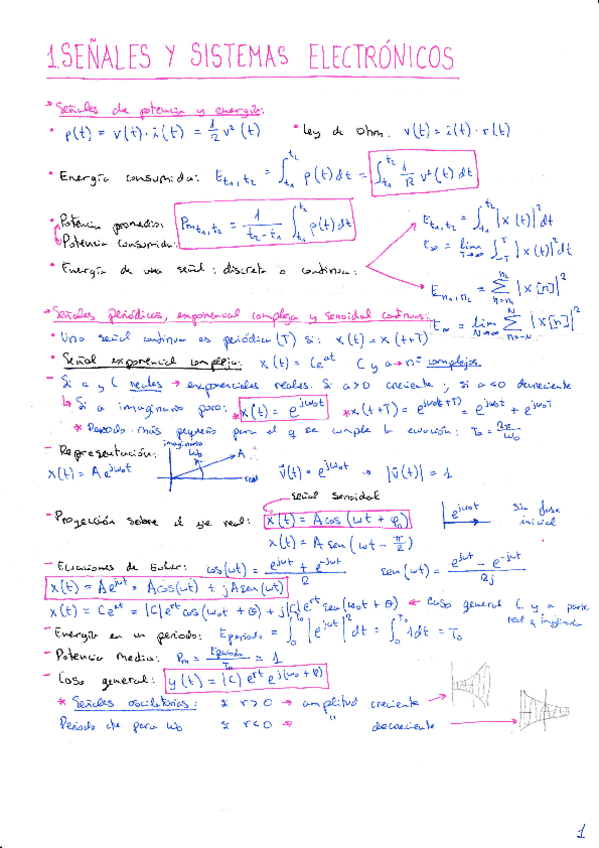 1. SEÑALES Y SISTEMAS ELECTRÓNICOS
* Señales de potencia y energía:
• p(t) = v(t)·i(t) = 1/R v²(t) • Ley de Ohm. v(t) = i(t)·r(t)
• Energía consumida: E_{t1,t2} = ∫_{t1}^{t2} p(t)dt = ∫_{t1}^{t2} 1/R v²(t)dt
• Potencia promedio: Pm_{t1,t2} = 1/(t2-t1) ∫_{t1}^{t2} p(t)dt
Potencia consumida:
E_{t1,t2} = ∫_{t1}^{t2} |x(t)|² dt
E∞ = lim_{T→∞} ∫_{-T}^{T} |x(t)|² dt
• Energía de una señal: discreta o continua:
E_{n1,n2} = Σ_{n=n1}^{n2} |x[n]|²
E∞ = lim_{N→∞} Σ_{n=-N}^{N} |x[n]|²
* Señales periódicas, exponencial compleja y senoidal continuas:
• Una señal continua es periódica (T) si: x(t) = x(t+T)
• Señal exponencial compleja: x(t) = Ce^{at} C y a → nº complejos.
- Si a y C reales → exponenciales reales. Si a>0 creciente; si a<0 decreciente
↳ Si a imaginario puro: * x(t) = e^{jω0t} * x(t+T) = e^{jω0(t+T)} = e^{jω0t} + e^{jω0T}
* Periodo más pequeño para el q se cumple la ecuación: T0 = 2π/ω0
- Representación: imaginario ω0 A
x(t) = A e^{jω0t} real v̄(t) = e^{jω0t} → |v̄(t)| = 1
señal senoidal
- Proyección sobre el eje real: x(t) = A cos(ωt + φ0) e^{jω0t} Sin fase inicial
x(t) = A sen(ωt - π/2)
- Ecuaciones de Euler: cos(ωt) = (e^{jωt} + e^{-jωt})/2 sen(ωt) = (e^{jωt} - e^{-jωt})/2j
x(t) = Ae^{jωt} = A cos(ωt) + jA sen(ωt)
x(t) = Ce^{at} = |C|e^{rt} cos(ω0t + θ) + j|C|e^{rt} sen(ω0t + θ) ← Caso general C y a parte real e imaginario
- Energía en un periodo: Eperiodo = ∫_0^{T0} |e^{jωt}|² dt = ∫_0^{T0} 1dt = T0
- Potencia media: Pm = Eperiodo/T0 = 1
- Caso general: y(t) = |C| e^{rt} e^{j(ω0+φ)}
* Señales oscilatorias: si r>0 → amplitud creciente →
Periodo cte para ω0 si r<0 → " decreciente →
1